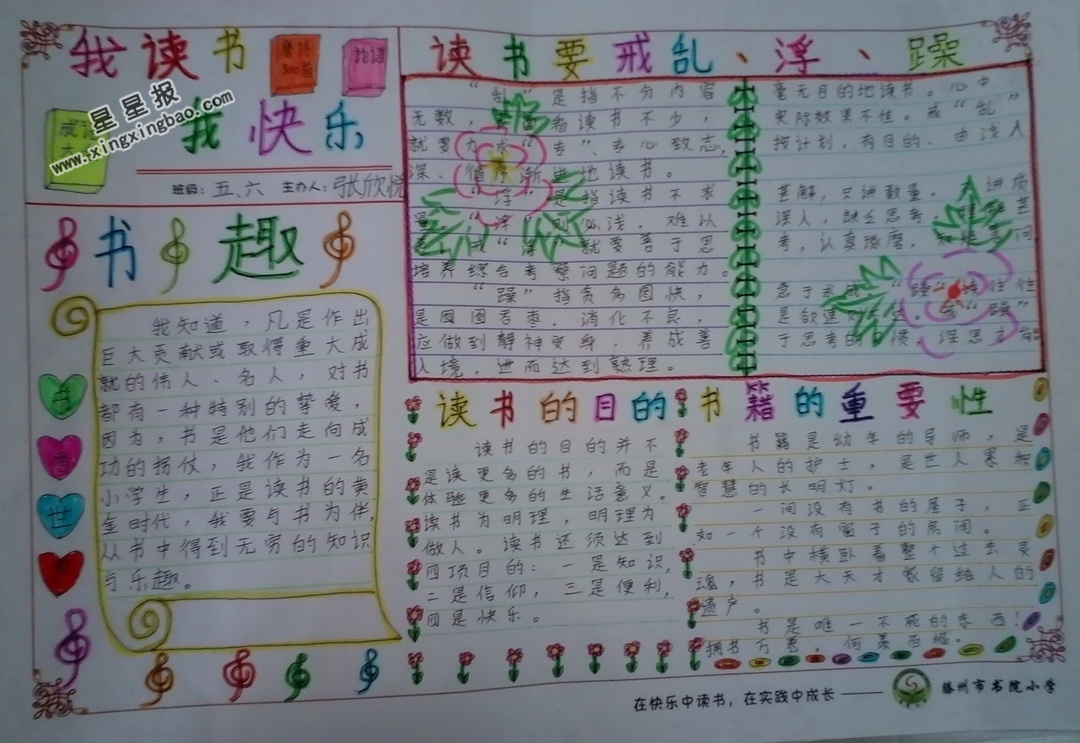 我读书
我快乐
唐诗
300首
论语
成语
星星报
www.xingxingbao.com
班级：五、六 主办人：张欣悦
书趣
我知道，凡是作出
巨大贡献或取得重大成
就的伟人、名人，对书
都有一种特别的挚爱，
因为，书是他们走向成
功的拐仗，我作为一名
小学生，正是读书的黄
金时代，我要与书为伴，
从书中得到无穷的知识
与乐趣。
书
香
世
读书要戒乱、浮、躁
“乱”是指不分内容
无数，着读书不少，
就要力求“专”、专心致志，
深、循序渐进地读书。
“浮”是指读书不求
则必浅，难以
戒“浮”就要善于思
培养综合考察问题的能力。
“躁”指贪多图快，
是囫囵吞枣，消化不良，
应做到静神变身，养成善
人境，进而达到熟理。
毫无目的地读书。心中
实际效果不佳。戒“乱”
按计划，有目的、由浅入
甚解，只讲数量，讲质
深入，缺乏思考，
考，认真琢磨，问
急于求成“躁”往往
是欲速“躁”
于思考的候深思
读书的目的
读书的目的并不
是读更多的书，而是
体验更多的生活意义。
读书为明理，明理为
做人。读书还须达到
四项目的：一是知识，
二是信仰，三是便利，
四是快乐。
书籍的重要性
书籍是幼年的导师，是
老年人的护士，是世人累积
智慧的长明灯。
一间没有书的屋子，正
如一个没有窗子的房间。
书中横卧着整个过去灵
魂，书是大天才家留给人的
遗产。
书是唯一不死的东西！
拥书万卷，何羡百城。
在快乐中读书，在实践中成长——
滕州市书院小学